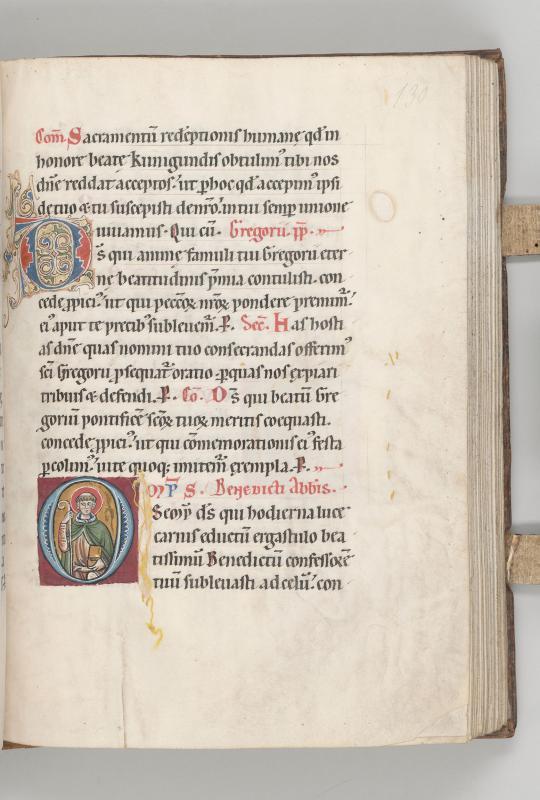 130
Com̄. Sacramentū redēptionis humanę qd̄ in
honore beatę kunigundis obtulim᾽ tibi nos
dn̄e reddat acceptos. ut ꝑ hoc qd̄ accepim᾽ ipsi
de tuo & tu suscepisti de nr̄o. in tui semꝑ unione
uiuamus. Qui cū. Gregorii. pp̄.
D s̄ qui anime famuli tui Gregorii eter
ne beatitudinis p̄mia contulisti. con
cede ꝓpici᾽. ut qui peccōꝝ nr̄oꝝ pondere premim᾽.
ei᾽ aput te precib᾽ subleuem᾽. P. Sec̄. Has hosti
as dn̄e quas nomini tuo consecrandas offerim᾽
sc̄i Gregorii ꝓsequat᾽ oratio. ꝑ quas nos expiari
tribuis & defendi. P. Co. Ds̄ qui beatū Gre
gorium pontificē sc̄oꝝ tuoꝝ meritis coequasti.
concede ꝓpici᾽. ut qui cōmemorationis ei᾽ festa
ꝑcolim᾽. uite quoq; imitem᾽ exempla. P.
S. Benedicti Abbis.
O m̄p̄ sem̄p̄ ds̄ qui hodierna luce
carnis eductū ergastulo bea
tissimū Benedictū confessorē
tuū subleuasti ad celū. con